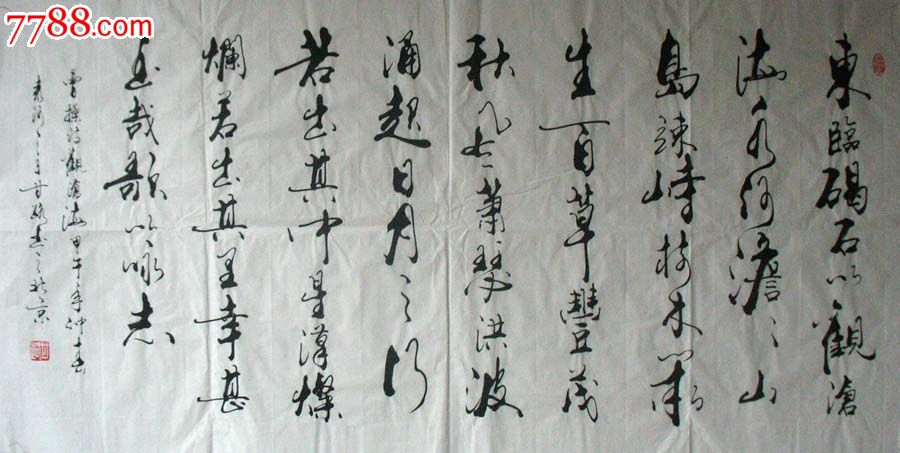 7788.com
東臨碣石以觀滄
海水何澹ミ山
島竦峙樹木叢
生百草豐茂
秋风蕭瑟洪波
涌起日月之行
若出其中星漢燦
爛若出其里幸甚
至哉歌以咏志
曹操詩觀滄海甲午年仲
北京